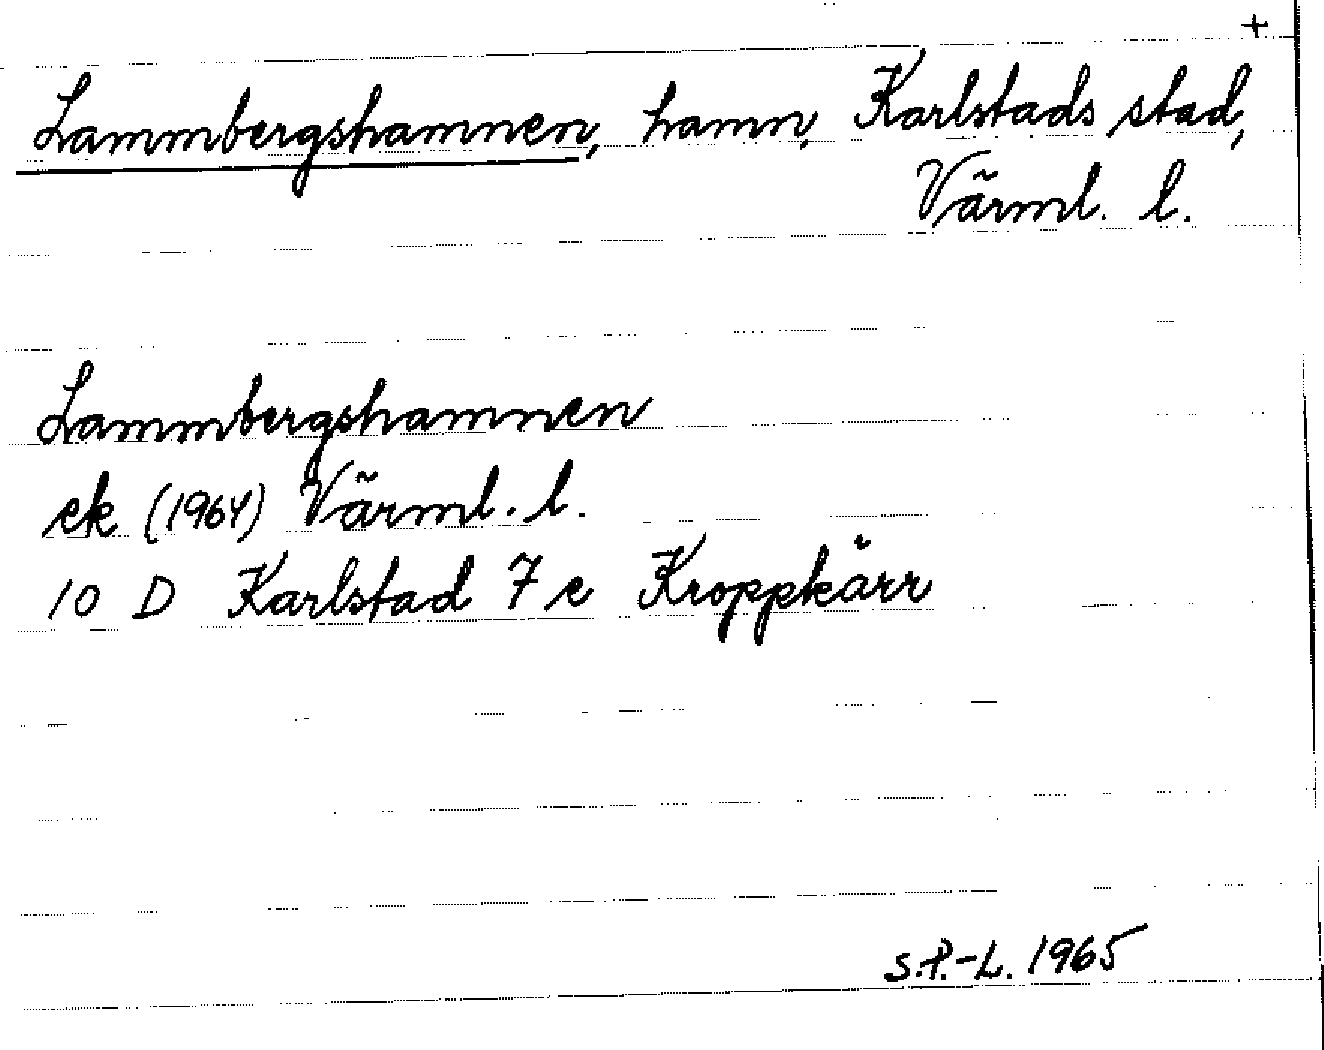 +
Lammbergshamnen, hamn, Karlstads stad,
Värml. l.
Lammbergshamnen
ek (1964) Värml. l.
10 D Karlstad 7 e Kroppkärr
S.P.-L. 1965